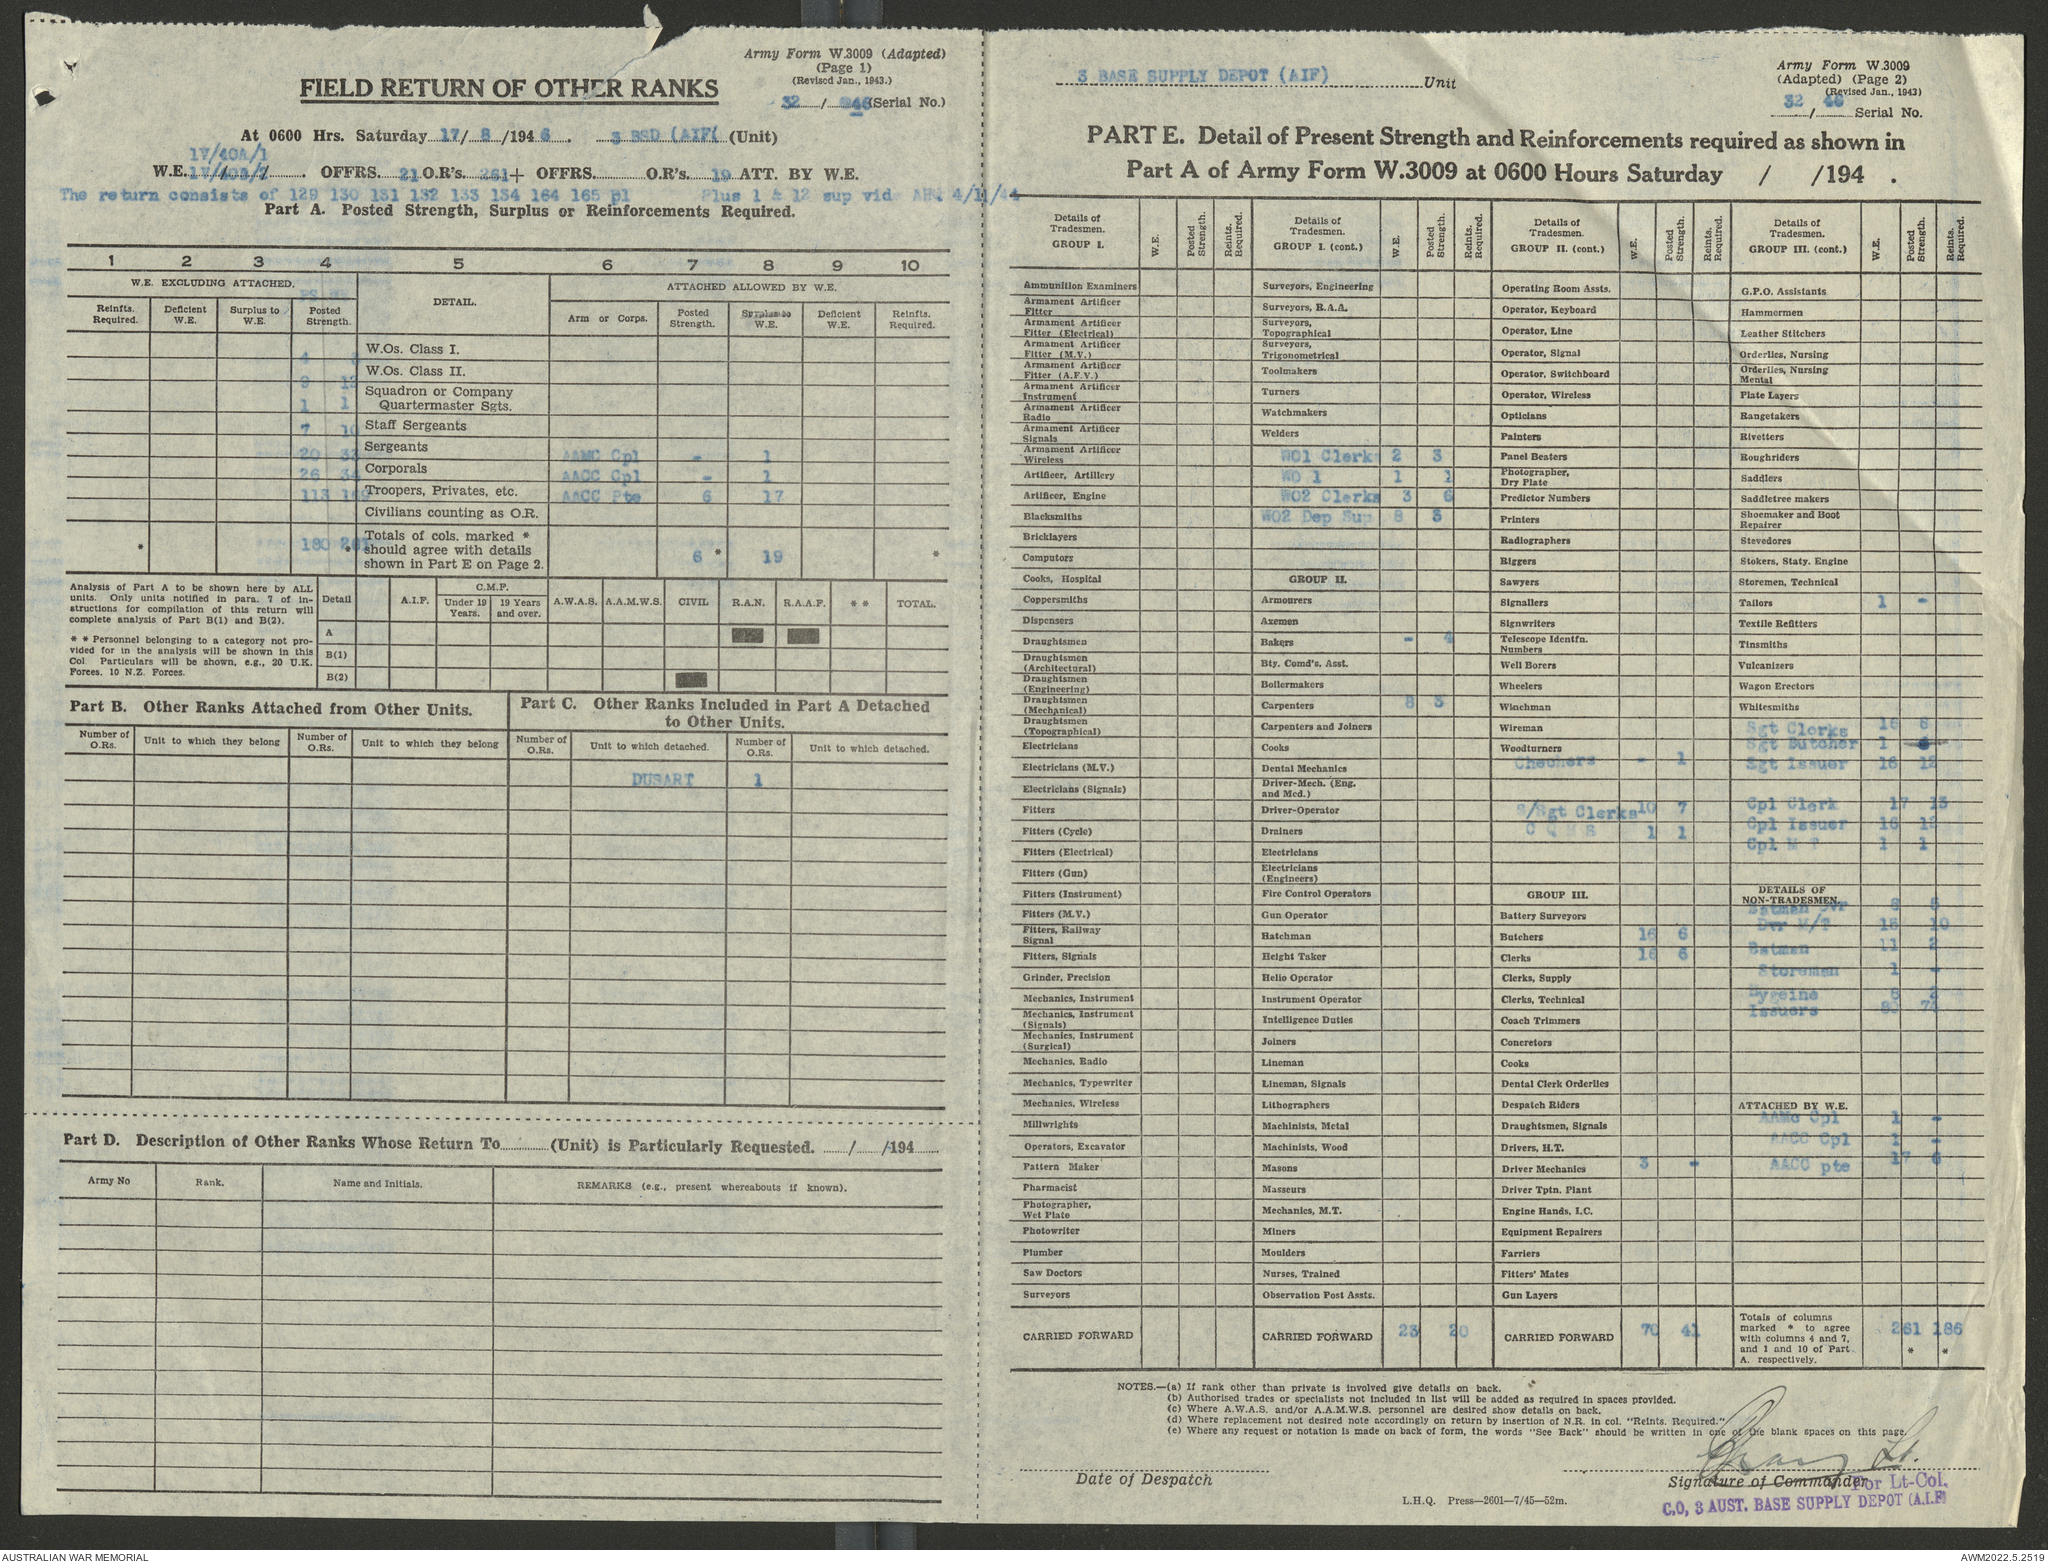 Army Form W.3009 (Adapted)
(Page 1)
(Revised Jan., 1943.)
FIELD RETURN OF OTHER RANKS
32 / 46 (Serial No.)
At 0600 Hrs. Saturday 17/ 8 /194 6. 3 BSD (AIF( (Unit)
1V/40A/1
W.E. OFFRS. 21 O.R's. 261 + OFFRS. O.R's. 19 ATT. BY W.E.
The return consists of 129 130 131 132 133 134 164 165 pl Plus 1 & 12 sup vid AHQ 4/11/44
Part A. Posted Strength, Surplus or Reinforcements Required.
1 2 3 4 5 6 7 8 9 10
W.E. EXCLUDING ATTACHED. DETAIL. ATTACHED ALLOWED BY W.E.
Reinfts. Required. Deficient W.E. Surplus to W.E. Posted Strength. Arm or Corps. Posted Strength. Surplus to W.E. Deficient W.E. Reinfts. Required.
W.Os. Class I. 4
W.Os. Class II. 9 12
Squadron or Company Quartermaster Sgts. 1 1
Staff Sergeants 7 10
Sergeants 20 33 AAMC Cpl - 1
Corporals 26 34 AACC Cpl - 1
Troopers, Privates, etc. 113 AACC Pte 6 17
Civilians counting as O.R.
Totals of cols. marked * should agree with details shown in Part E on Page 2. * 180 261 * 6 * 19 *
Analysis of Part A to be shown here by ALL
units. Only units notified in para. 7 of in-
structions for compilation of this return will
complete analysis of Part B(1) and B(2).
* * Personnel belonging to a category not pro-
vided for in the analysis will be shown in this
Col. Particulars will be shown, e.g., 20 U.K.
Forces. 10 N.Z. Forces.
Detail A.I.F. C.M.F. Under 19 Years. 19 Years and over. A.W.A.S. A.A.M.W.S. CIVIL R.A.N. R.A.A.F. * * TOTAL.
A
B(1)
B(2)
Part B. Other Ranks Attached from Other Units.
Number of O.Rs. Unit to which they belong Number of O.Rs. Unit to which they belong
Part C. Other Ranks Included in Part A Detached
to Other Units.
Number of O.Rs. Unit to which detached. Number of O.Rs. Unit to which detached.
DUSART 1
Part D. Description of Other Ranks Whose Return To (Unit) is Particularly Requested. / /194
Army No Rank. Name and Initials. REMARKS (e.g., present whereabouts if known).
3 BASE SUPPLY DEPOT (AIF) Unit
Army Form W.3009
(Adapted) (Page 2)
(Revised Jan., 1943)
32 / 46 Serial No.
PART E. Detail of Present Strength and Reinforcements required as shown in
Part A of Army Form W.3009 at 0600 Hours Saturday / /194 .
Details of Tradesmen. GROUP I. W.E. Posted Strength. Reints. Required.
Ammunition Examiners
Armament Artificer Fitter
Armament Artificer Fitter (Electrical)
Armament Artificer Fitter (M.V.)
Armament Artificer Fitter (A.F.V.)
Armament Artificer Instrument
Armament Artificer Radio
Armament Artificer Signals
Armament Artificer Wireless
Artificer, Artillery
Artificer, Engine
Blacksmiths
Bricklayers
Computors
Cooks, Hospital
Coppersmiths
Dispensers
Draughtsmen
Draughtsmen (Architectural)
Draughtsmen (Engineering)
Draughtsmen (Mechanical)
Draughtsmen (Topographical)
Electricians
Electricians (M.V.)
Electricians (Signals)
Fitters
Fitters (Cycle)
Fitters (Electrical)
Fitters (Gun)
Fitters (Instrument)
Fitters (M.V.)
Fitters, Railway Signal
Fitters, Signals
Grinder, Precision
Mechanics, Instrument
Mechanics, Instrument (Signals)
Mechanics, Instrument (Surgical)
Mechanics, Radio
Mechanics, Typewriter
Mechanics, Wireless
Millwrights
Operators, Excavator
Pattern Maker
Pharmacist
Photographer, Wet Plate
Photowriter
Plumber
Saw Doctors
Surveyors
CARRIED FORWARD
Details of Tradesmen. GROUP I. (cont.) W.E. Posted Strength. Reints. Required.
Surveyors, Engineering
Surveyors, R.A.A.
Surveyors, Topographical
Surveyors, Trigonometrical
Toolmakers
Turners
Watchmakers
Welders
WO1 Clerk 2 3
WO 1 1 1
WO2 Clerks 3 6
WO2 Dep Sup 8 3
GROUP II.
Armourers
Axemen
Bakers - 4
Bty. Comd's. Asst.
Boilermakers
Carpenters 8 3
Carpenters and Joiners
Cooks
Dental Mechanics
Driver-Mech. (Eng. and Mcd.)
Driver-Operator
Drainers
Electricians
Electricians (Engineers)
Fire Control Operators
Gun Operator
Hatchman
Height Taker
Helio Operator
Instrument Operator
Intelligence Duties
Joiners
Lineman
Lineman, Signals
Lithographers
Machinists, Metal
Machinists, Wood
Masons
Masseurs
Mechanics, M.T.
Miners
Moulders
Nurses, Trained
Observation Post Assts.
CARRIED FORWARD 23 20
Details of Tradesmen. GROUP II. (cont.) W.E. Posted Strength. Reints. Required.
Operating Room Assts.
Operator, Keyboard
Operator, Line
Operator, Signal
Operator, Switchboard
Operator, Wireless
Opticians
Painters
Panel Beaters
Photographer, Dry Plate
Predictor Numbers
Printers
Radiographers
Riggers
Sawyers
Signallers
Signwriters
Telescope Identfn. Numbers
Well Borers
Wheelers
Winchman
Wireman
Woodturners
Checkers - 1
S/Sgt Clerks 10 7
C Q M S 1 1
GROUP III.
Battery Surveyors
Butchers 16 6
Clerks 16 6
Clerks, Supply
Clerks, Technical
Coach Trimmers
Concretors
Cooks
Dental Clerk Orderlies
Despatch Riders
Draughtsmen, Signals
Drivers, H.T.
Driver Mechanics 3 -
Driver Tptn. Plant
Engine Hands, I.C.
Equipment Repairers
Farriers
Fitters' Mates
Gun Layers
CARRIED FORWARD 70 41
Details of Tradesmen. GROUP III. (cont.) W.E. Posted Strength. Reints. Required.
G.P.O. Assistants
Hammermen
Leather Stitchers
Orderlies, Nursing
Orderlies, Nursing Mental
Plate Layers
Rangetakers
Rivetters
Roughriders
Saddlers
Saddletree makers
Shoemaker and Boot Repairer
Stevedores
Stokers, Staty. Engine
Storemen, Technical
Tailors 1 -
Textile Refitters
Tinsmiths
Vulcanizers
Wagon Erectors
Whitesmiths
Sgt Clerks 16 8
Sgt Butcher 1
Sgt Issuer 16 12
Cpl Clerk 17 13
Cpl Issuer 16 12
Cpl M T 1 1
DETAILS OF NON-TRADESMEN.
Batman Dvr 8 5
Dvr M/T 15 10
Batman 11 2
Storeman 1 -
Hygeine 8 2
Issuers 74
ATTACHED BY W.E.
AAMc Cpl 1 -
AACC Cpl 1 -
AACC pte 17 6
Totals of columns marked * to agree with columns 4 and 7, and 1 and 10 of Part A. respectively. 261 186
* *
NOTES.—(a) If rank other than private is involved give details on back.
(b) Authorised trades or specialists not included in list will be added as required in spaces provided.
(c) Where A.W.A.S. and/or A.A.M.W.S. personnel are desired show details on back.
(d) Where replacement not desired note accordingly on return by insertion of N.R. in col. "Reints. Required."
(e) Where any request or notation is made on back of form, the words "See Back" should be written in one of the blank spaces on this page.
Lt.
Date of Despatch
Signature of Commander For Lt-Col.
L.H.Q. Press—2601—7/45—52m.
C.O, 3 AUST. BASE SUPPLY DEPOT (A.I.F)
AUSTRALIAN WAR MEMORIAL
AWM2022.5.2519